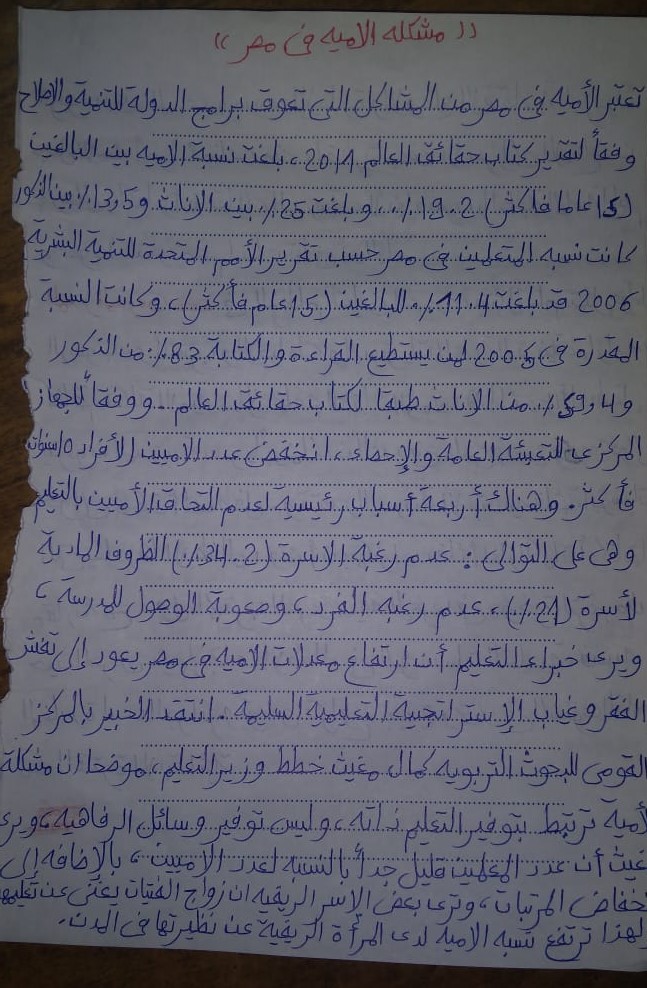 (( مشكله الاميه فى مصر ))
تعتبر الأميه في مصر من المشاكل التي تعوق برامج الدولة للتنمية والاصلاح
وفقاً لتقدير كتاب حقائق العالم 2014 ، بلغت نسبة الاميه بين البالغين
(15 عاما فاكثر) 19.2 ٪ . وبلغت 25٪ بين الاناث و 13,5٪ بين الذكور
كانت نسبه المتعلمين فى مصر حسب تقرير الأمم المتحدة للتنمية البشرية
2006 قد بلغت 11.4٪ للبالغين (15 عام فأكثر) ، وكانت النسبة
المقدرة في 2005 لمن يستطيع القراءة والكتابة 83٪ من الذكور
و 59,4٪ من الاناث طبقا لكتاب حقائق العالم . ووفقاً للجهاز
المركزى للتعبئة العامة والإحصاء ، انخفض عدد الاميين (لأفراد 10 سنوات
فأكثر . وهناك أربعة أسباب رئيسية لعدم التحاق الأميين بالتعليم
وهى على التوالى : عدم رغبة الاسرة (34.2٪) الظروف المادية
لأسرة (24٪) ، عدم رغبه الفرد ، وصعوبة الوصول للمدرسة ،
ويرى خبراء التعليم أن ارتفاع معدلات الاميه فى مصر يعود إلى تفش
الفقر وغياب الإستراتجية التعليمية السليمة . انتقد الخبير بالمركز
القومى للبحوث التربويه كمال مغيث خطط وزير التعليم ، موضحا ان مشكلة
لأمية ترتبط بتوفير التعليم ذاته ، وليس توفير وسائل الرفاهيه ، ويرى
غيث أن عدد المعلمين قليل جداً بالنسبه لعدد الاميين ، بالإضافه إلى
نخفاض المرتبات ، وترى بعض الاسر الريفيه ان زواج الفتيات يغنى عن تعليمها
لهذا ترتفع نسبه الاميه لدى المرأة الريفية عن نظيرتها فى المدن .